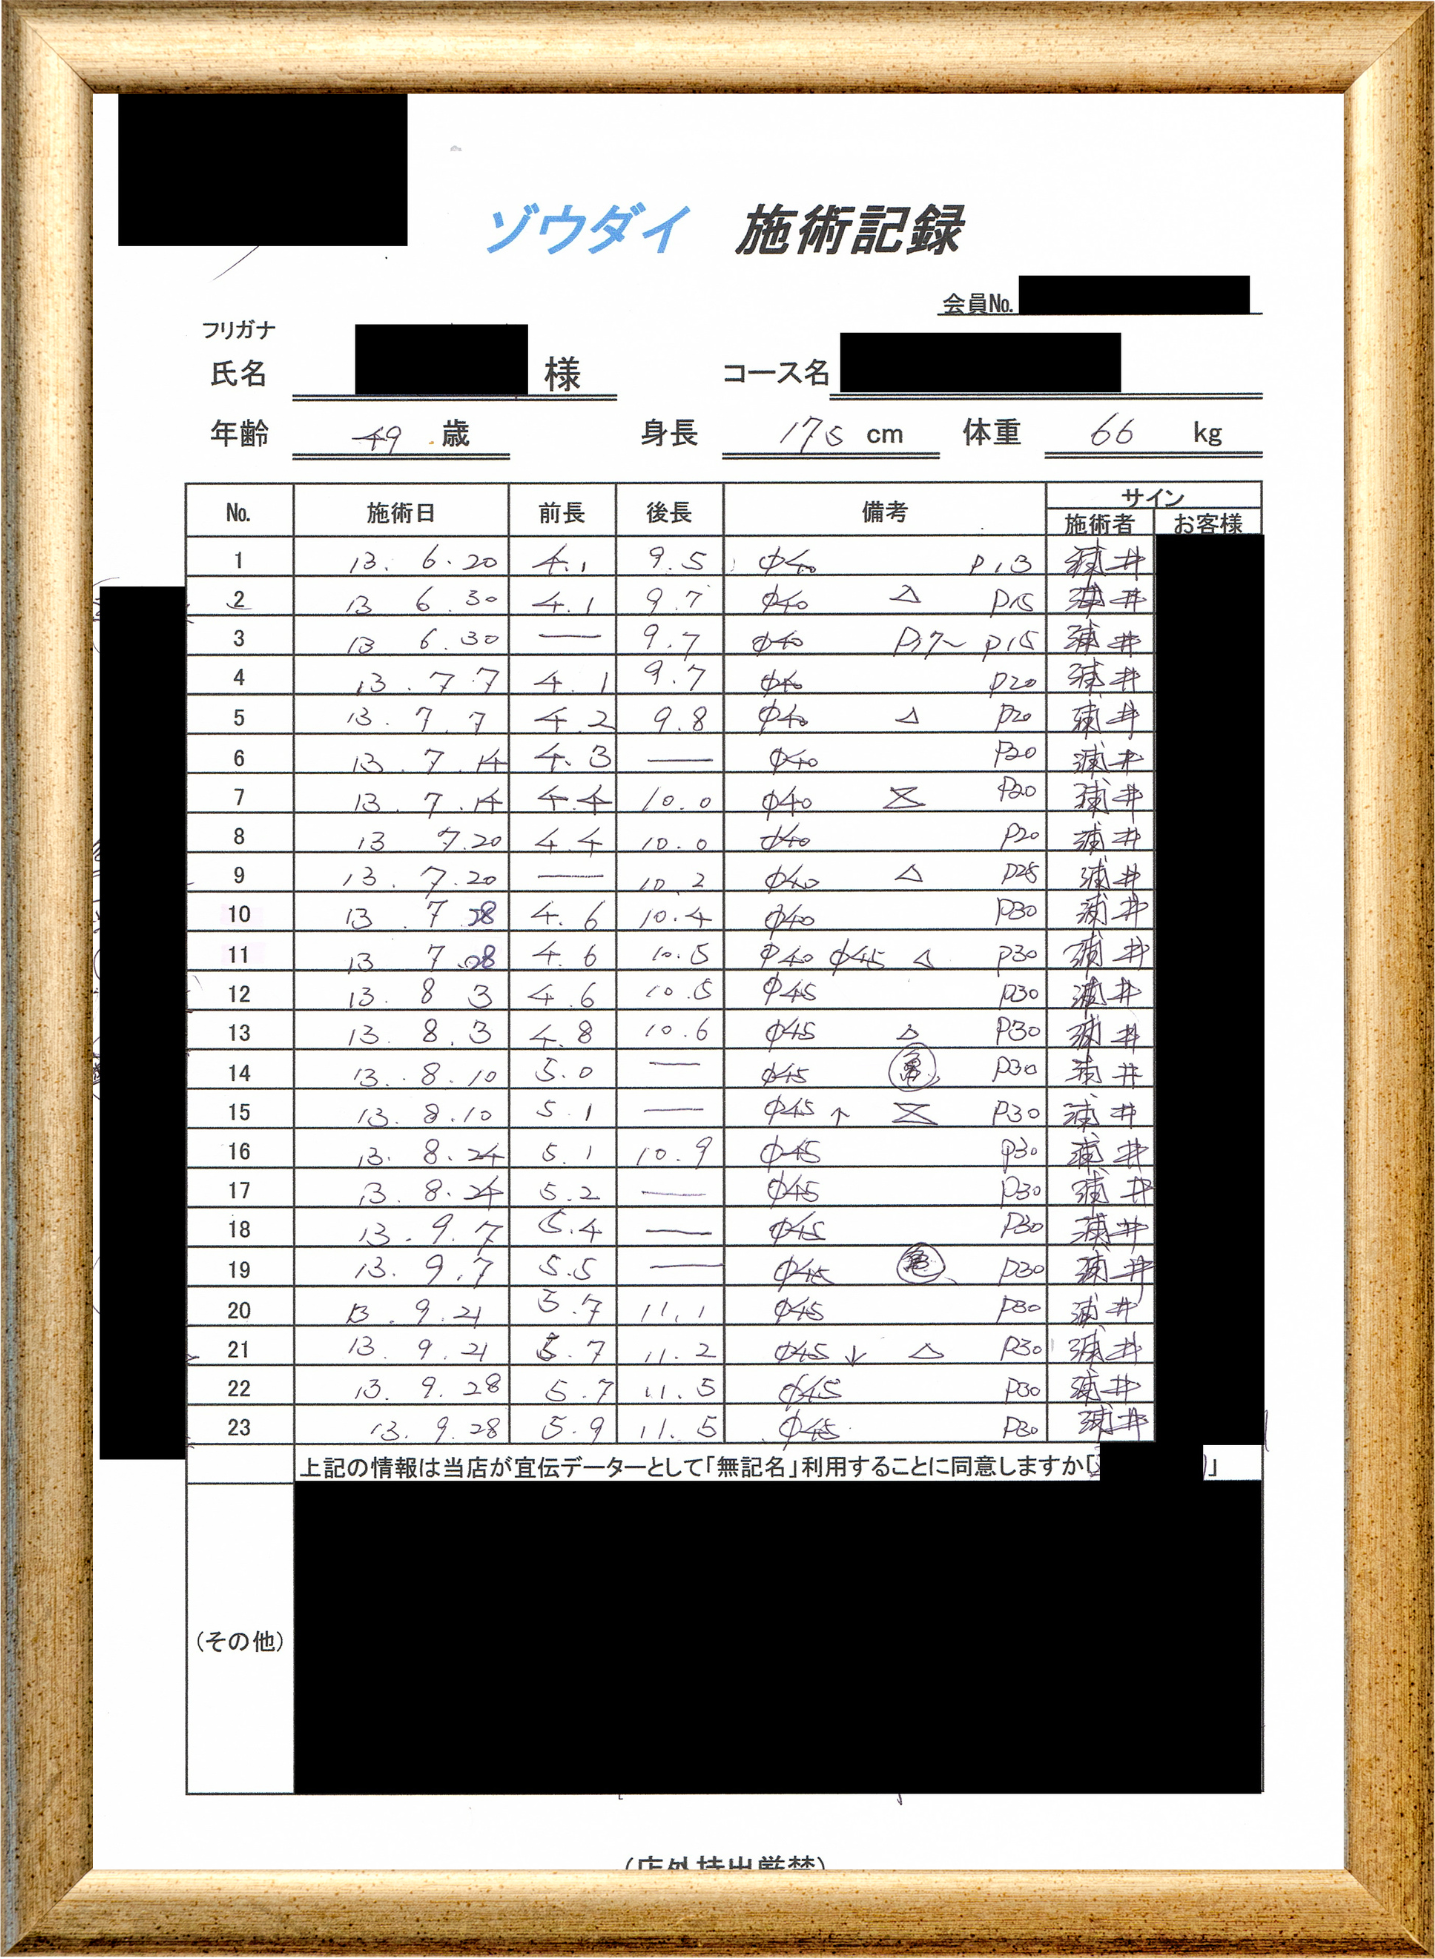 ゾウダイ 施術記録
会員No.
フリガナ
氏名 様 コース名
年齢 49 歳 身長 175 cm 体重 66 kg
No. 施術日 前長 後長 備考 サイン
施術者 お客様
1 13. 6. 20 4.1 9.5 φ40 P13 浦井
2 13 6. 30 4.1 9.7 φ40 △ P15 浦井
3 13 6. 30 — 9.7 φ40 P17~P15 浦井
4 13. 7 7 4.1 9.7 φ40 P20 浦井
5 13. 7. 7 4.2 9.8 φ40 △ P20 浦井
6 13. 7. 14 4.3 — φ40 P20 浦井
7 13. 7. 14 4.4 10.0 φ40 P20 浦井
8 13 7.20 4.4 10.0 φ40 P20 浦井
9 13. 7.20 — 10.2 φ40 △ P25 浦井
10 13 . 7 28 4.6 10.4 φ40 P30 浦井
11 13 7 .28 4.6 10.5 φ40 φ45 △ P30 浦井
12 13. 8 3 4.6 10.5 φ45 P30 浦井
13 13 8.3 4.8 10.6 φ45 △ P30 浦井
14 13. 8.10 5.0 — φ45 P30 浦井
15 13. 8.10 5.1 — φ45 ↑ P30 浦井
16 13. 8.24 5.1 10.9 φ45 P30 浦井
17 13. 8.24 5.2 — φ45 P30 浦井
18 13. 9. 7 5.4 — φ45 P30 浦井
19 13. 9.7 5.5 — φ45 P30 浦井
20 13. 9.21 5.7 11.1 φ45 P30 浦井
21 13 9.21 5.7 11.2 φ45 ↓ △ P30 浦井
22 13. 9.28 5.7 11.5 φ45 P30 浦井
23 13. 9.28 5.9 11.5 φ45 P30 浦井
上記の情報は当店が宣伝データーとして「無記名」利用することに同意しますか「 」
(その他)
(店外持出厳禁)